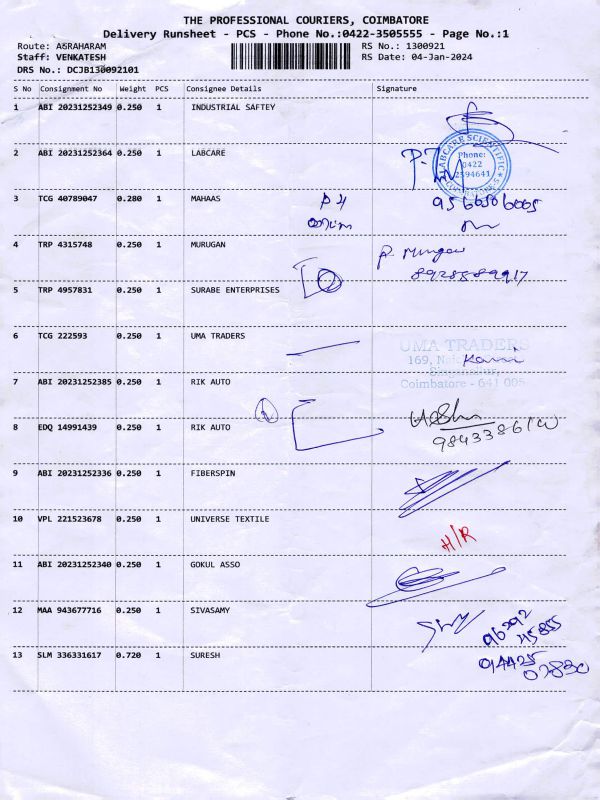 THE PROFESSIONAL COURIERS, COIMBATORE
Delivery Runsheet - PCS - Phone No.:0422-3505555 - Page No.:1
Route: AGRAHARAM RS No.: 1300921
Staff: VENKATESH RS Date: 04-Jan-2024
DRS No.: DCJB130092101
S No Consignment No Weight PCS Consignee Details Signature
1 ABI 20231252349 0.250 1 INDUSTRIAL SAFTEY
2 ABI 20231252364 0.250 1 LABCARE
LABCARE SCIENTIFIC
Phone:
0422
2594641
3 TCG 40789047 0.280 1 MAHAAS
4 TRP 4315748 0.250 1 MURUGAN
5 TRP 4957831 0.250 1 SURABE ENTERPRISES
6 TCG 222593 0.250 1 UMA TRADERS UMA TRADERS
Coimbatore - 641 005
7 ABI 20231252385 0.250 1 RIK AUTO
8 EDQ 14991439 0.250 1 RIK AUTO
9 ABI 20231252336 0.250 1 FIBERSPIN
10 VPL 221523678 0.250 1 UNIVERSE TEXTILE H/R
11 ABI 20231252340 0.250 1 GOKUL ASSO
12 MAA 943677716 0.250 1 SIVASAMY 96292
45855
13 SLM 336331617 0.720 1 SURESH 94425
02830